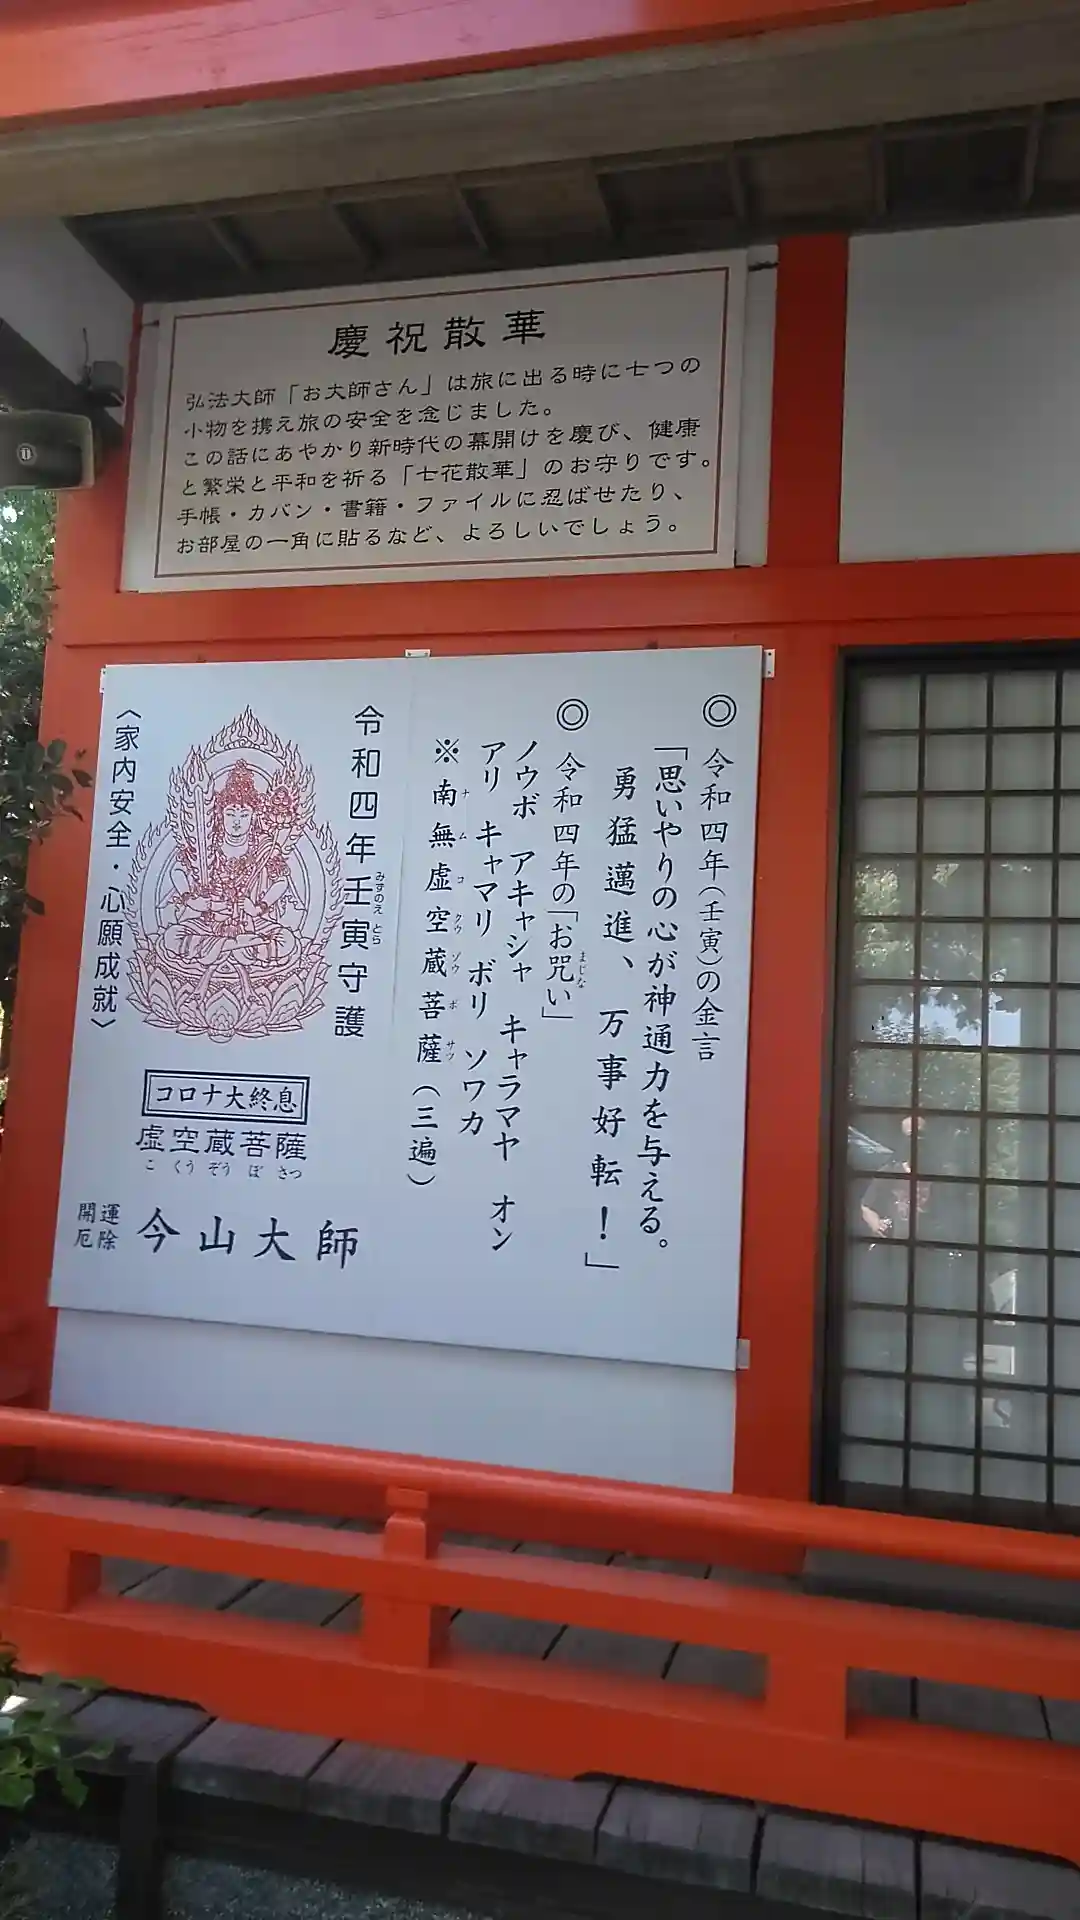 慶祝散華
弘法大師「お大師さん」は旅に出る時に七つの
小物を携え旅の安全を念じました。
この話にあやかり新時代の幕開けを慶び、健康
と繁栄と平和を祈る「七花散華」のお守りです。
手帳・カバン・書籍・ファイルに忍ばせたり、
お部屋の一角に貼るなど、よろしいでしょう。
◎令和四年(壬寅)の金言
「思いやりの心が神通力を与える。
勇猛邁進、万事好転!」
◎令和四年の「お咒い」
まじな
ノウボ アキャシャ キャラマヤ オン
アリ キャマリ ボリ ソワカ
※南無虚空蔵菩薩(三遍)
ナムコクウゾウボサツ
令和四年壬寅守護
みずのえ とら
〈家内安全・心願成就〉
コロナ大終息
虚空蔵菩薩
こくうぞうぼさつ
開運
厄除
今山大師